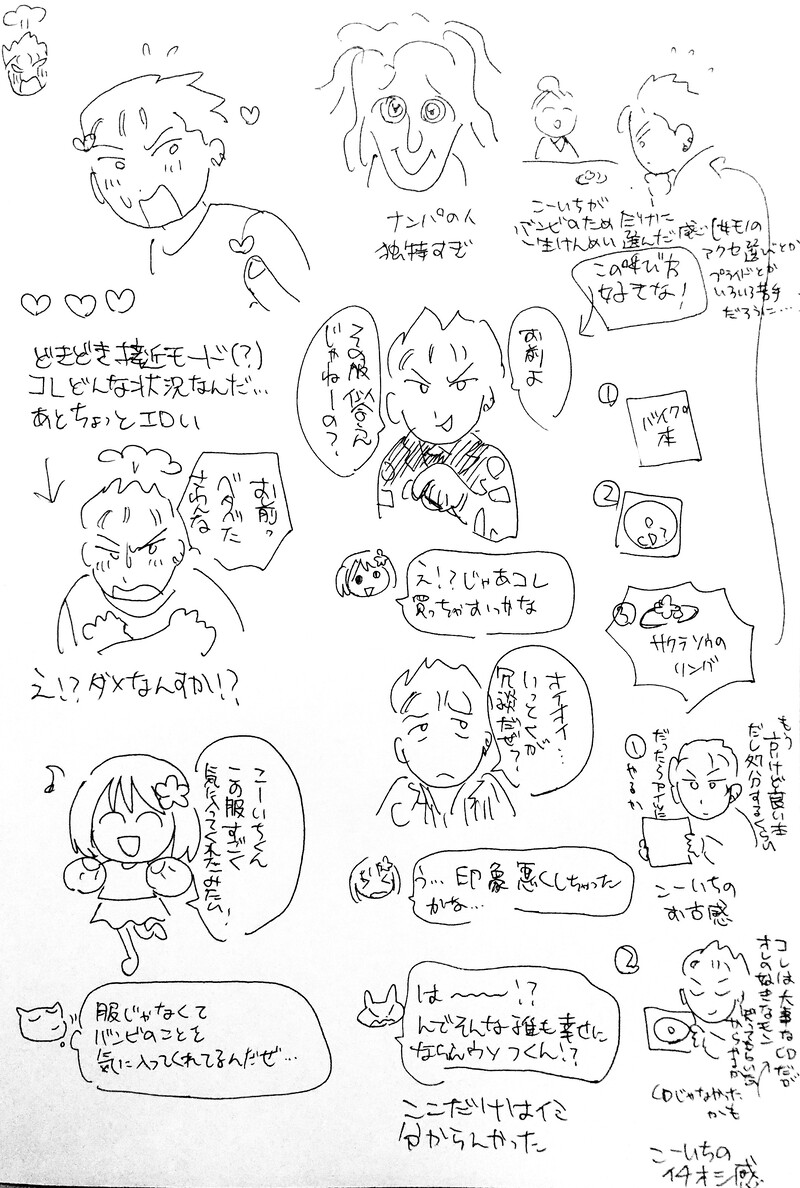 どきどき接近モード(?)
コレどんな状況なんだ…
あとちょっとエロい
お前っ
ベタベタ
さわんな
え!?ダメなんすか!?
こーいちくん
この服すごく
気に入ってくれたみたい!
服じゃなくて
バンビのことを
気に入ってくれてるんだぜ…
ナンパの人
独特すぎ
お前よ
その服似合うん
じゃねーの?
え!?じゃあコレ
買っちゃおっかな
オイオイ…
いってくが
冗談だぜ?
う…印象悪くしちゃった
かな…
は〜〜〜!?
んでそんな誰も幸せに
ならんウソつくん!?
ここだけはイミ
分からんかった
こーいちが
バンビのためだけに
一生けんめい選んだ感じ
女モノの
アクセ選びとか
プライドとか
いろいろ苦手
だろうに…
この呼び方
好きな!
①
バイクの
本
②
CD?
③
サクラソウの
リング
①
もう
古いけど良い本
だし処分するくらい
だったらアイツに
やるか
こーいちの
お古感
②
コレは大事なCDだが
オレの好きなモン
知ってもらいた
いからやるか
CDじゃなかった
かも
こーいちの
イチオシ感